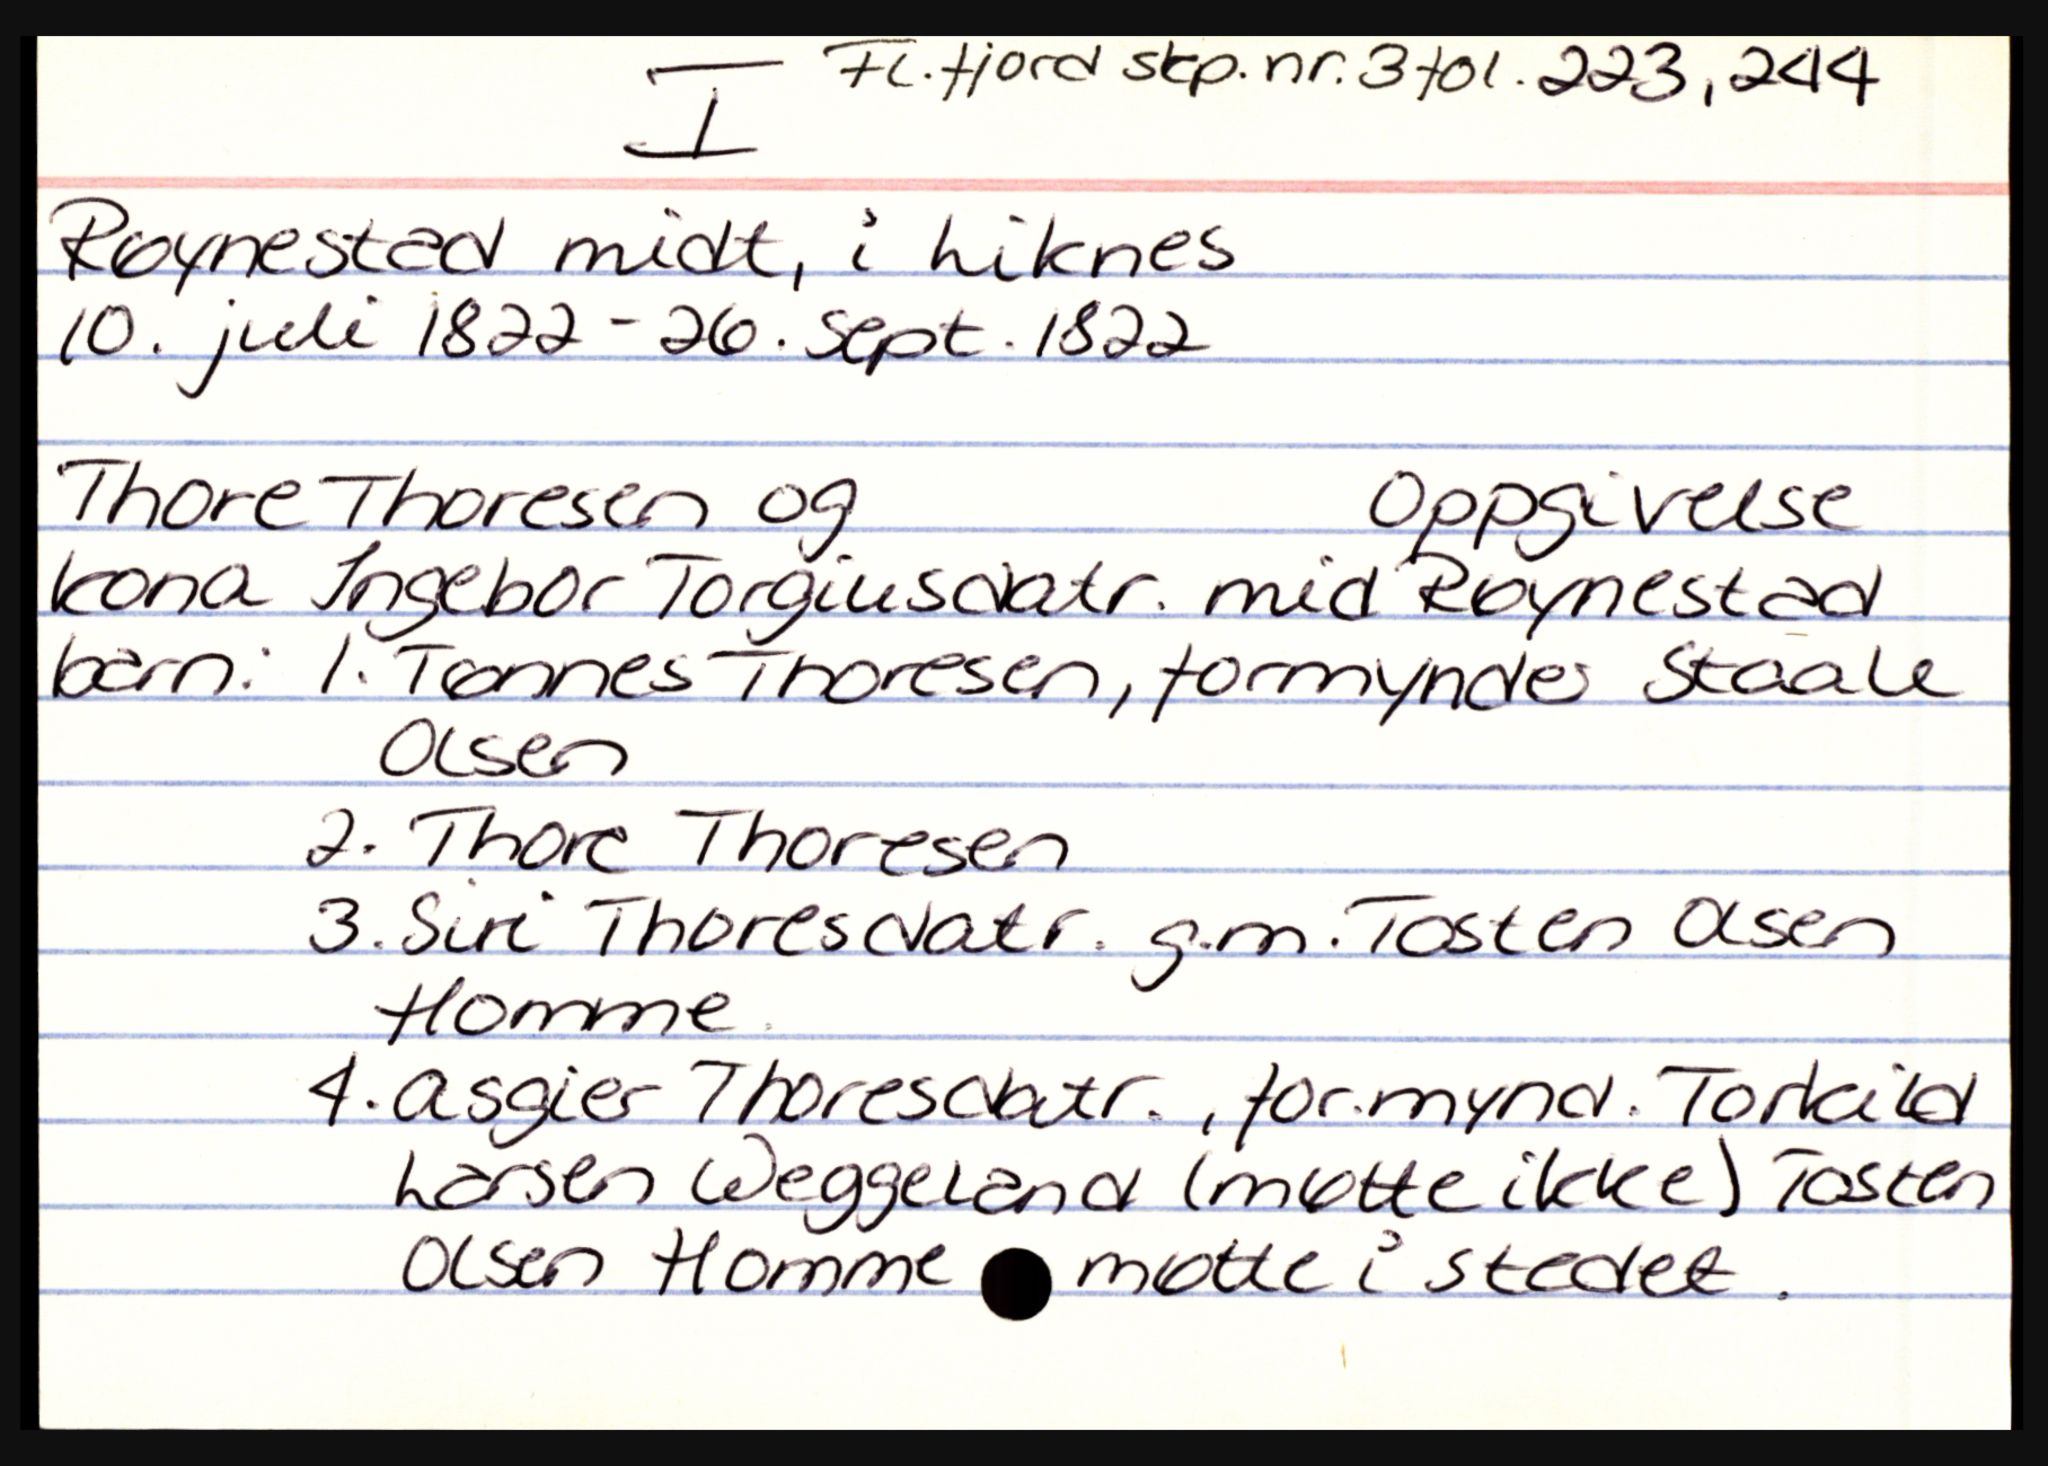 Fl.fjord skp.nr.3 fol. 223, 244
I
Røynestad midt, i Liknes
10. juli 1822 - 26. sept. 1822
Thore Thoresen og Oppgivelse
kona Ingebor Torgiusdatr. mid Røynestad
barn: 1. Tønnes Thoresen, formynder Staale
Olsen
2. Thore Thoresen
3. Siri Thoresdatr. g.m. Tosten Olsen
Homme.
4. Asgier Thoresdatr., for.mynd. Torkild
Larsen Weggeland (møtte ikke) Tosten
Olsen Homme møtte i stedet.